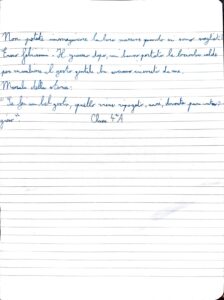 Non potete immaginare la loro mamma quando si sono svegliati!
Erano felicissimi. Il giorno dopo, mi hanno portato le brioche calde
per ricambiare il gesto gentile che avevano ricevuto da me.
Morale della storia:
"Se fai un bel gesto, quello viene ripagato, anzi,
Classe 4ªA